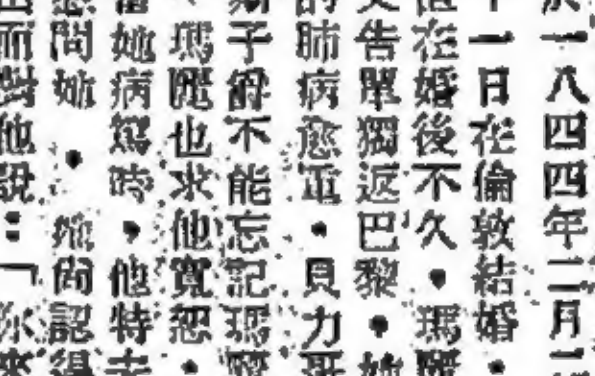 一八四四年二月
一日在倫敦結婚。
在婚後不久。瑪麗
告單獨返巴黎。她
的肺病愈重。貝力哥
子爵不能忘記瑪麗
瑪麗也求他寬恕。
當她病篤時,他特去
問她。她尚認得
而對他說:「你來